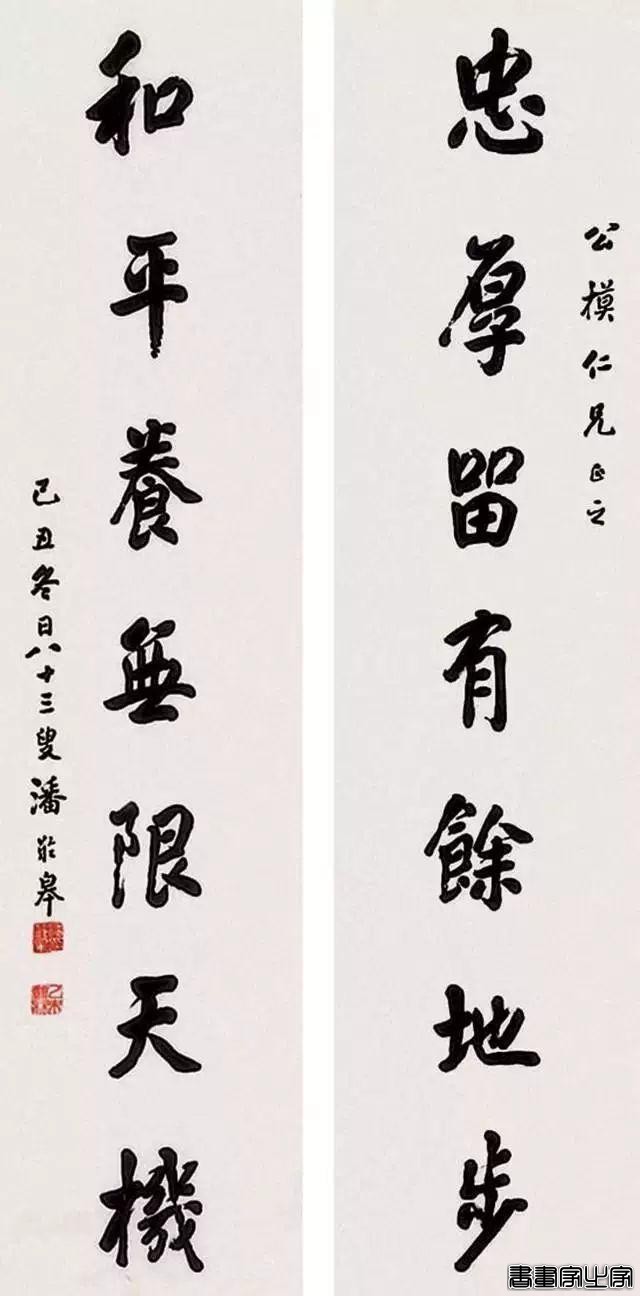 公模仁兄正之
忠厚留有餘地步
和平養無限天機
己丑冬日八十三叟潘齡皋
書畫家之家